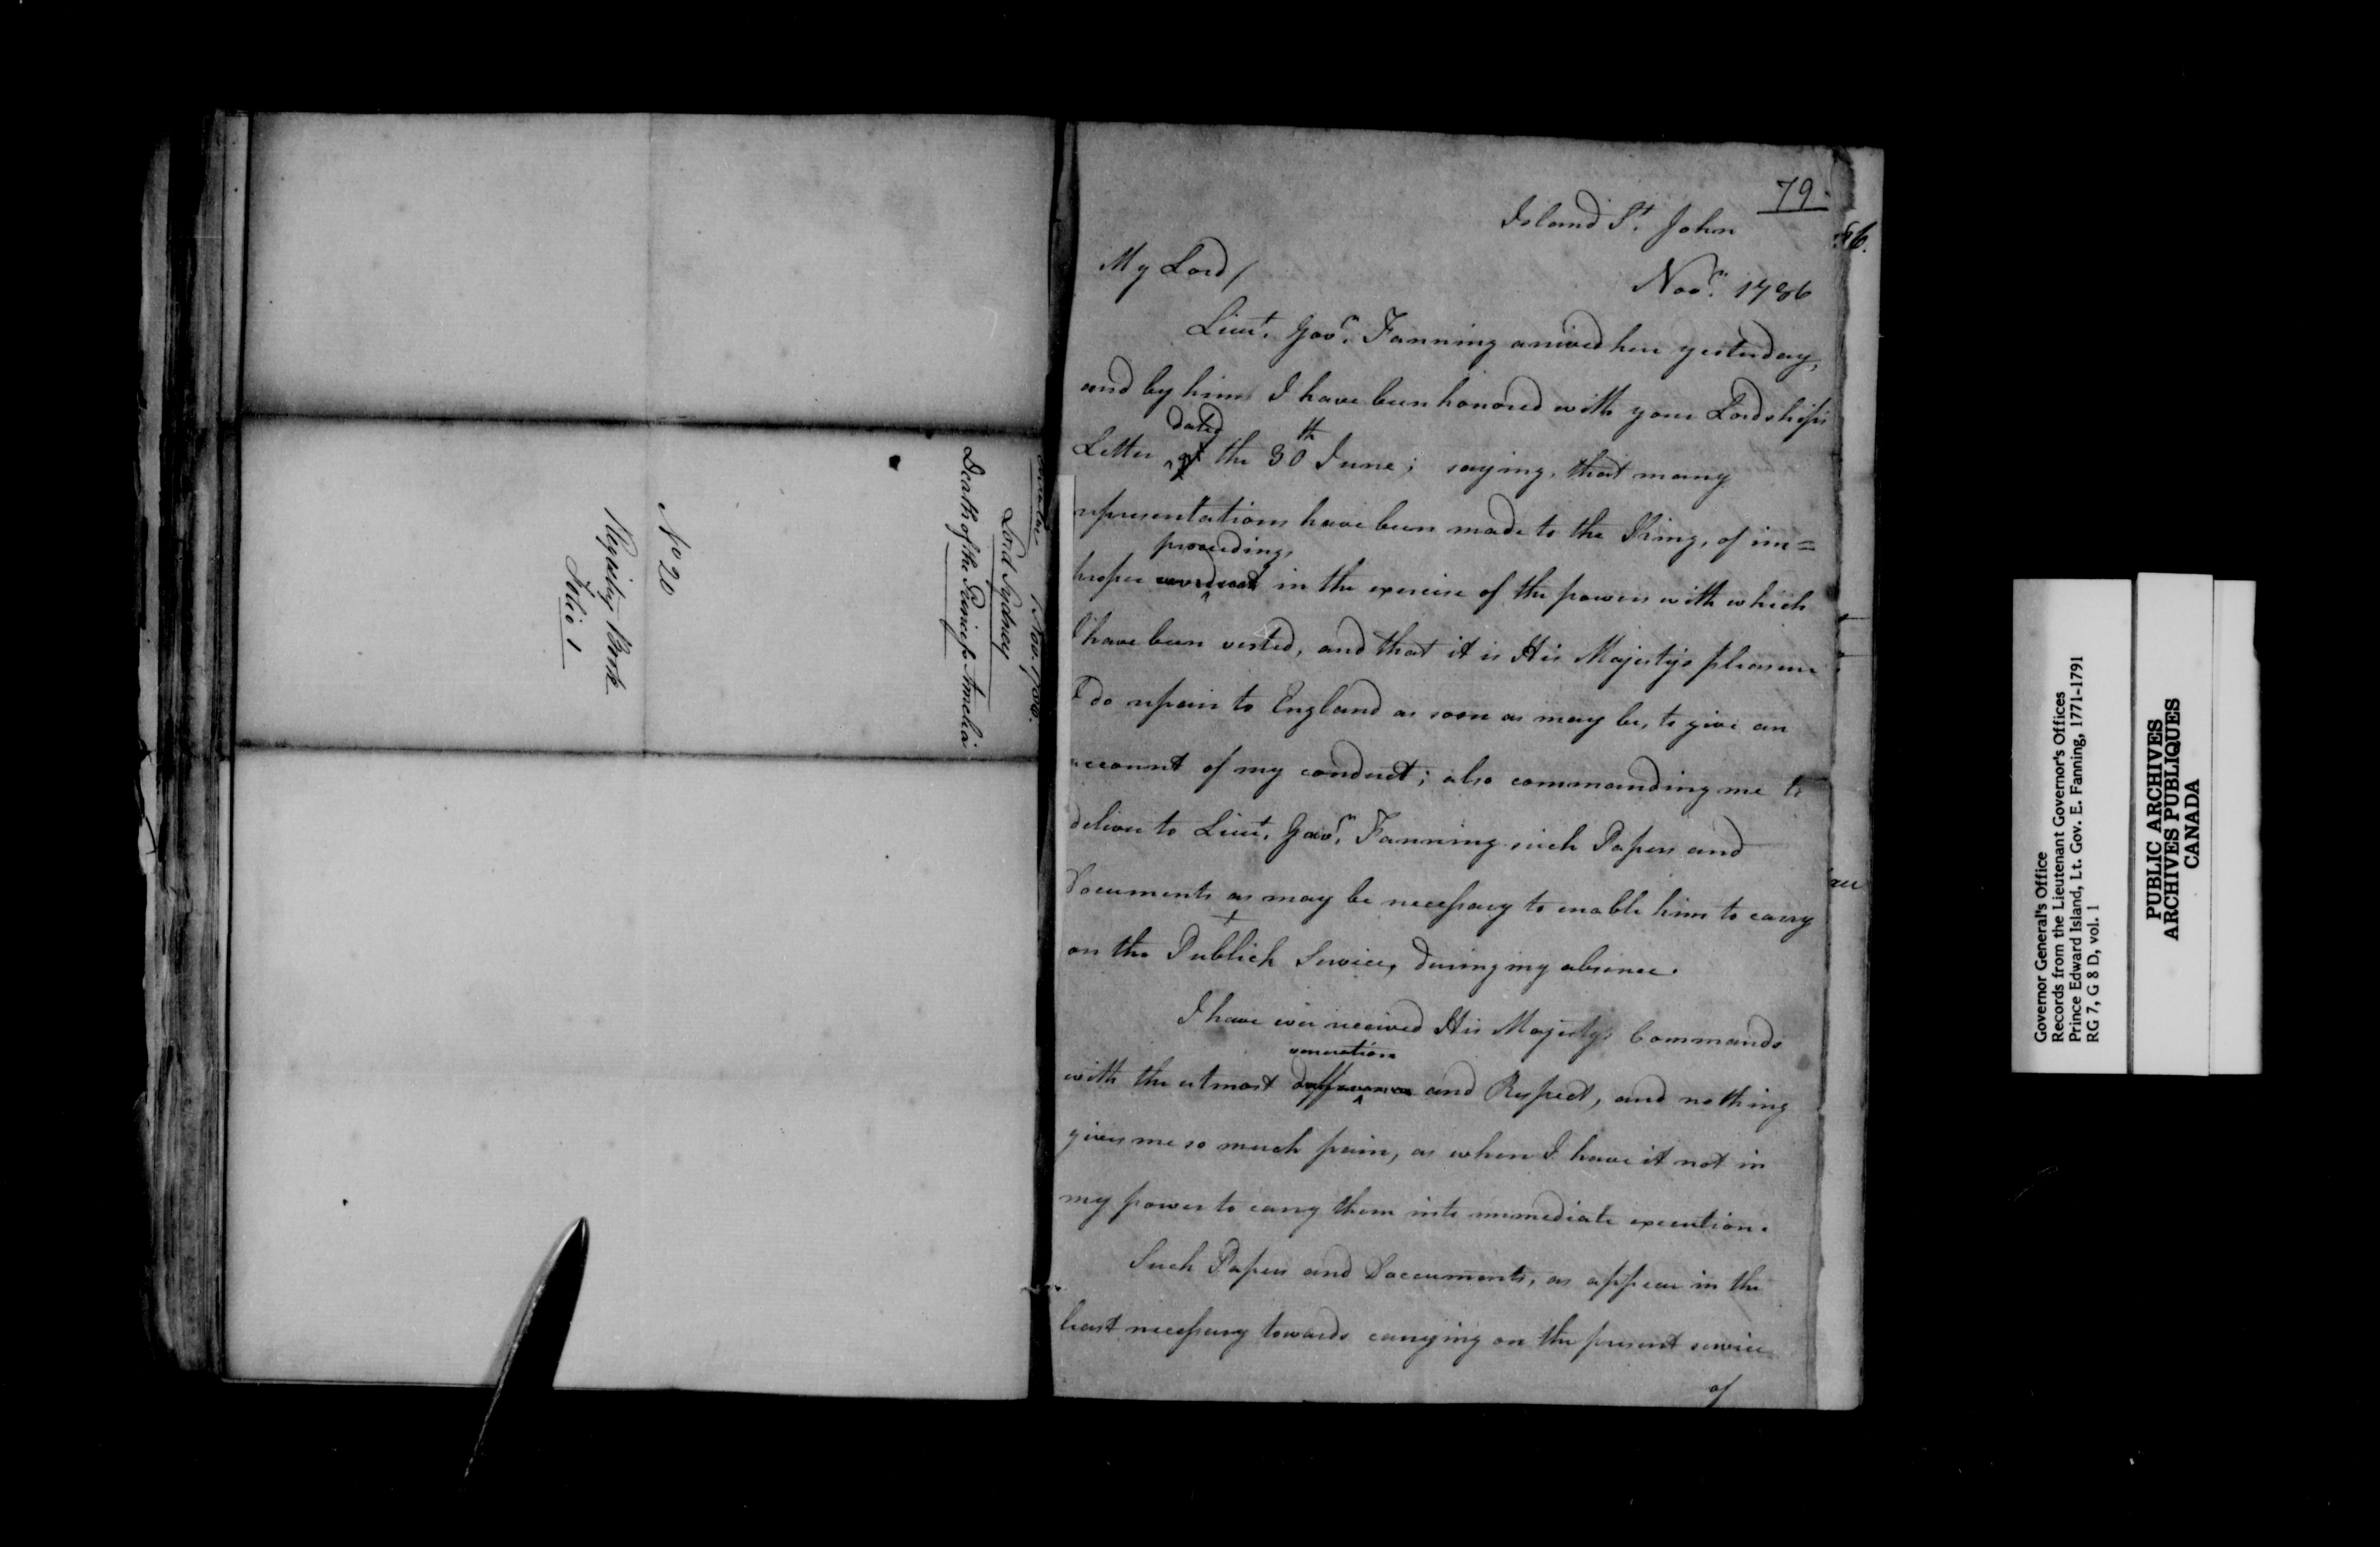 Nov. 1786.
Lord Sydney
Death of the Princess Amelia
No 20
Registry Book
Folio 1
79.
Island St. John
Novr. 1786
My Lord/
Lieut. Govr. Fanning arrived here yesterday,
and by him I have been honored with your Lordships
dated
Letter of the 30th June; saying, that many
representations have been made to the King, of im=
proceedings
proper conduct in the exercise of the powers with which
I have been vested, and that it is His Majesty's pleasure
I do repair to England as soon as may be, to give an
account of my conduct; also commanding me to
deliver to Lieut. Govr. Fanning such Papers and
Documents as may be necessary to enable him to carry
on the Publick Service, during my absence.
I have ever received His Majesty's Commands
veneration
with the utmost defference and Respect, and nothing
gives me so much pain, as when I have it not in
my power to carry them into immediate execution.
Such Papers and Doccuments, as appear in the
least necessary towards carrying on the present service
of
Governor General's Office
Records from the Lieutenant Governor's Offices
Prince Edward Island, Lt. Gov. E. Fanning, 1771-1791
RG 7, G 8 D, vol. 1
PUBLIC ARCHIVES
ARCHIVES PUBLIQUES
CANADA